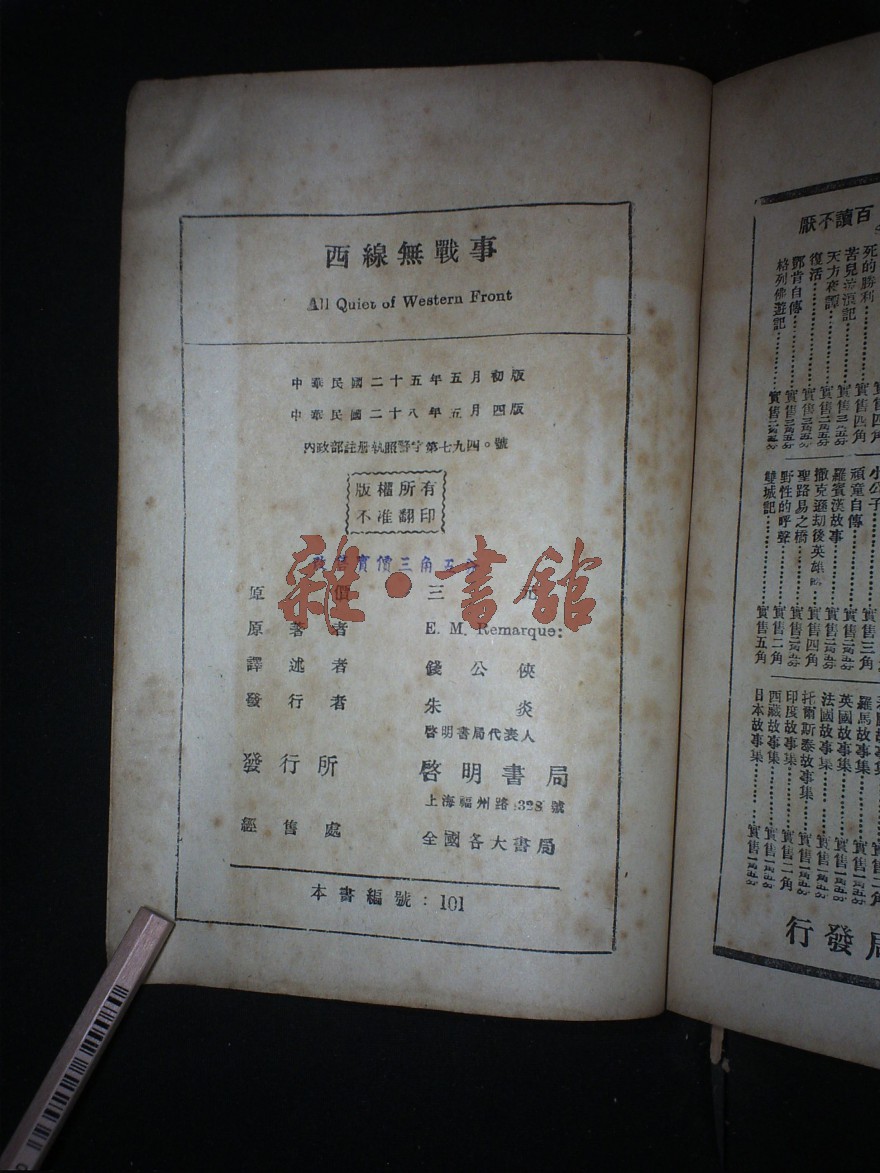 西線無戰事
All Quiet of Western Front
中華民國二十五年五月初版
中華民國二十八年五月四版
內政部註册執照警字第七九四〇號
版權所有
不准翻印
實價三角五分
原價 三元
原著者 E. M. Remarque:
譯述者 錢公俠
發行者 朱炎
啓明書局代表人
發行所 啓明書局
上海福州路 328 號
經售處 全國各大書局
本書編號：101
雜·書館
百讀不厭
死的勝利 實售四角
苦兒流浪記 實售四角
天方夜譚 實售三角五分
復活 實售三角五分
鄧肯自傳 實售三角五分
格列佛遊記 實售二角五分
小公子
頑童自傳 實售三角
羅賓漢故事 實售二角五分
撒克遜劫後英雄 實售四角
聖路易之橋 實售二角五分
野性的呼聲 實售二角
雙城記 實售五角
羅馬故事集
英國故事集 實售一角五分
法國故事集 實售一角五分
托爾斯泰故事集 實售一角五分
印度故事集 實售二角
西藏故事集 實售一角五分
日本故事集 實售一角五分
局發行